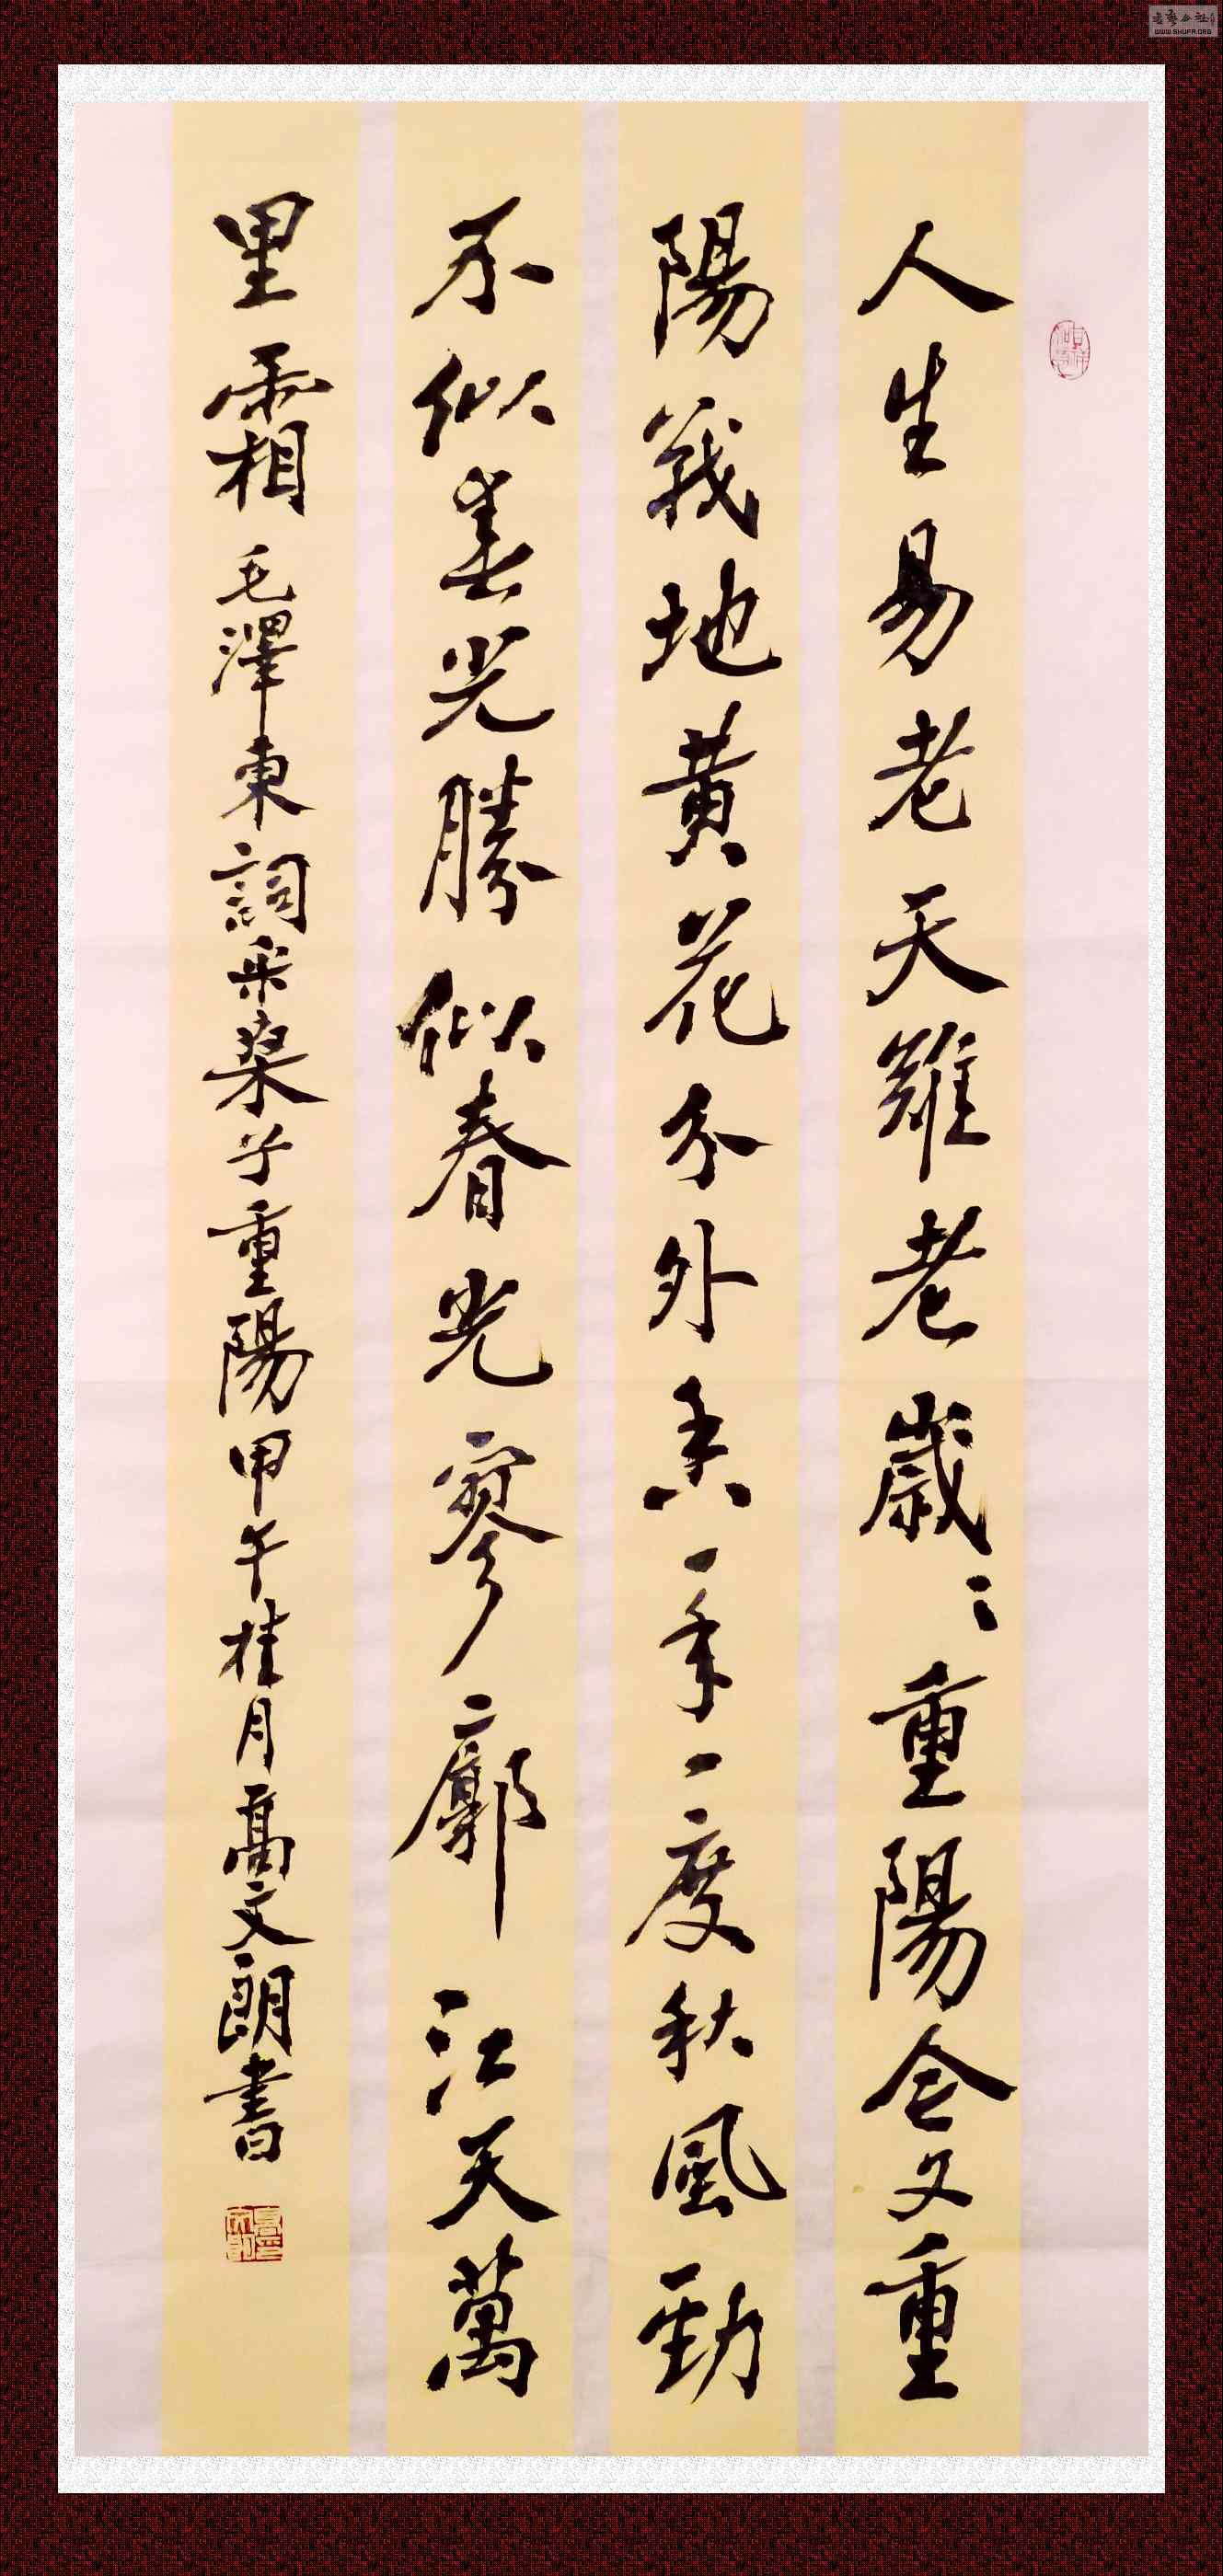 人生易老天難老歲〻重陽今又重
陽戰地黃花分外香一年一度秋風勁
不似春光勝似春光寥廓江天萬
里霜毛澤東詞采桑子重陽甲午桂月高文朗書
WWW.SHUFA.ORG